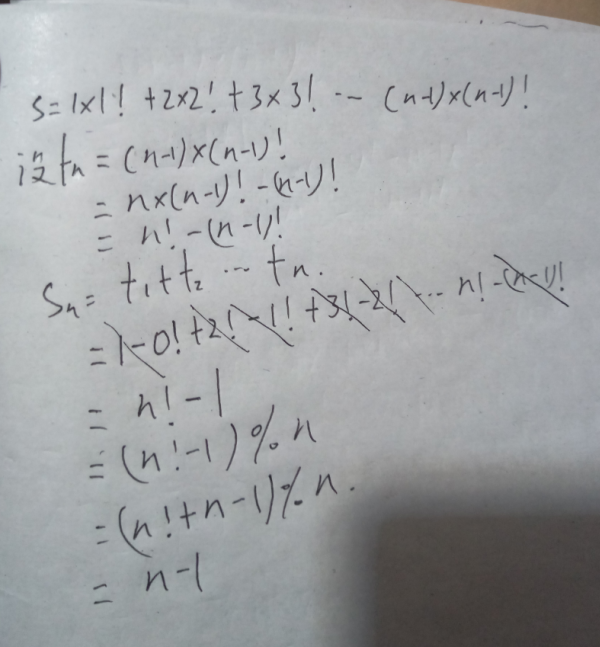 S=1×1! +2×2! +3×3! ... (n-1)×(n-1)!
记tn = (n-1)×(n-1)!
= n×(n-1)! -(n-1)!
= n! -(n-1)!
Sn= t1+t2 ... tn.
=1-0! +2! -1! +3! -2! ... n! -(n-1)!
= n! -1
=(n!-1)%n
=(n!+n-1)%n.
= n-1